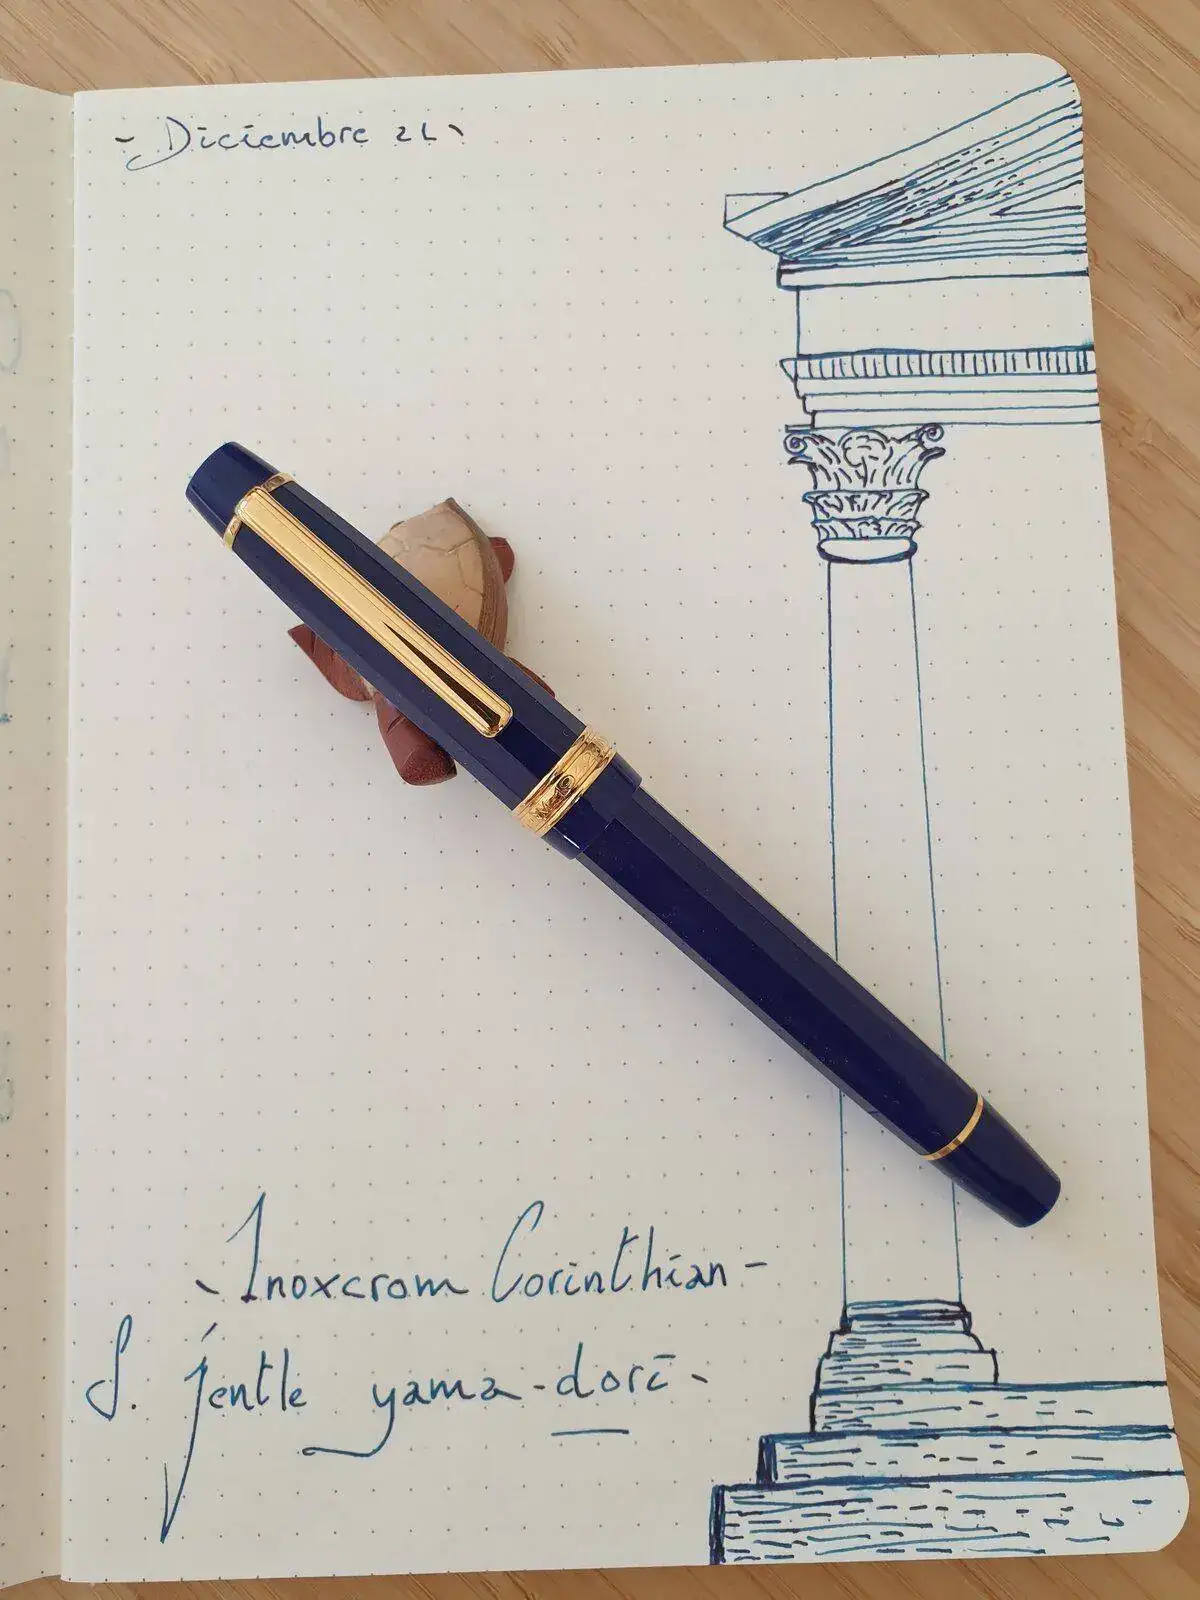 - Diciembre 21 -
- Inoxcrom Corinthian -
S. jentle yama-dori -